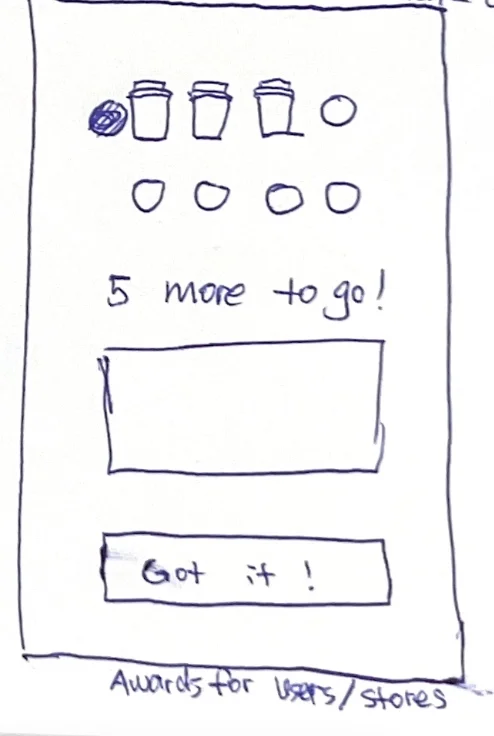 5 more to go!
Got it !
Awards for users/stores